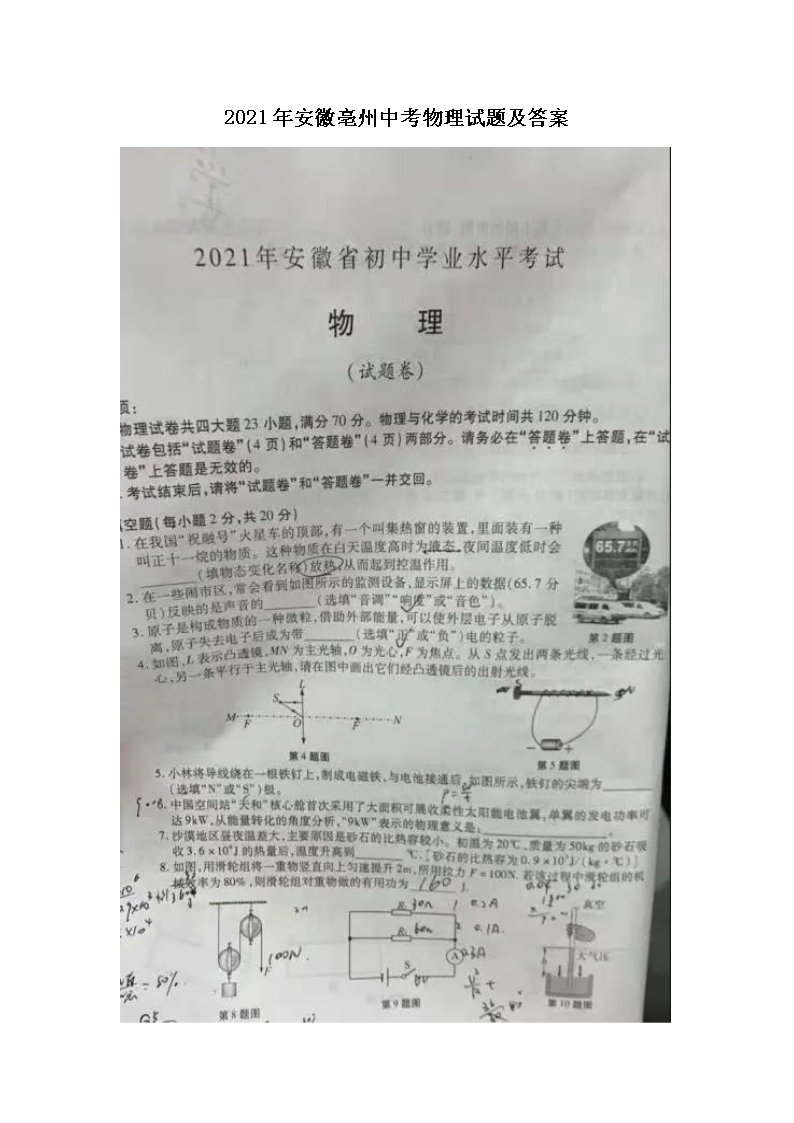 2021年安徽亳州中考物理试题及答案
2021年安徽省初中学业水平考试
物 理
(试题卷)
项：
物理试卷共四大题23小题,满分70分。物理与化学的考试时间共120分钟。
试卷包括“试题卷”(4页)和“答题卷”(4页)两部分。请务必在“答题卷”上答题,在“试
卷”上答题是无效的。
.考试结束后,请将“试题卷”和“答题卷”一并交回。
空题(每小题2分,共20分)
1.在我国“祝融号”火星车的顶部,有一个叫集热窗的装置,里面装有一种
叫正十一烷的物质。这种物质在白天温度高时为液态,夜间温度低时会
(填物态变化名称)放热,从而起到控温作用。
2.在一些闹市区,常会看到如图所示的监测设备,显示屏上的数据(65.7分
贝)反映的是声音的______(选填“音调”“响度”或“音色”)。
65.7
3.原子是构成物质的一种微粒,借助外部能量,可以使外层电子从原子脱
离,原子失去电子后成为带______(选填“正”或“负”)电的粒子。
第2题图
4.如图,L表示凸透镜,MN为主光轴,O为光心,F为焦点。从S点发出两条光线,一条经过光
心,另一条平行于主光轴,请在图中画出它们经凸透镜后的出射光线。
L
S
S N
M F O F N
- +
第4题图
第5题图
5.小林将导线绕在一根铁钉上,制成电磁铁,与电池接通后,如图所示,铁钉的尖端为______
(选填“N”或“S”)极。
6.中国空间站“天和”核心舱首次采用了大面积可展收柔性太阳能电池翼,单翼的发电功率可
达9kW,从能量转化的角度分析,“9kW”表示的物理意义是:______。
7.沙漠地区昼夜温差大,主要原因是砂石的比热容较小。初温为20℃、质量为50kg的砂石吸
收3.6×10⁵J的热量后,温度升高到______℃.[砂石的比热容为0.9×10³J/(kg·℃)]
8.如图,用滑轮组将一重物竖直向上匀速提升2m,所用拉力F=100N.若该过程中滑轮组的机
械效率为80%,则滑轮组对重物做的有用功为 160 J.
R₁ 30Ω 0.2A
R₂ 60Ω 0.1A.
A 0.3A
S
100N.
F
真空
大气压
h
= 80%
第8题图
第9题图
第10题图